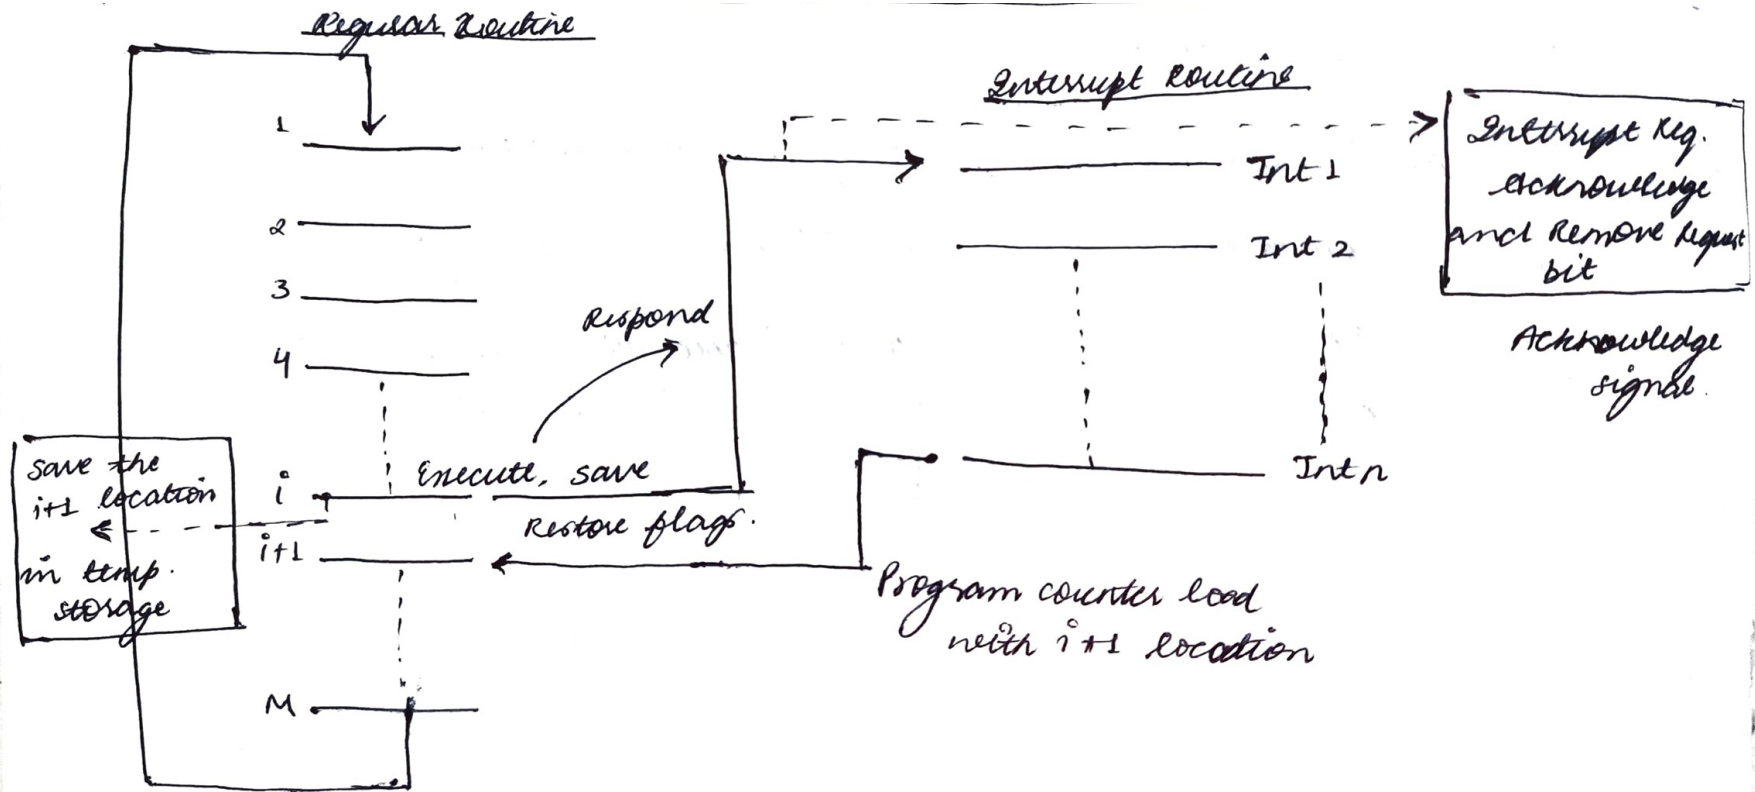 Regular Routine
Interrupt Routine
1
2
3
4
i
i+1
M
Save the
i+1 location
in temp.
storage
Respond
Execute, save
Restore flags.
Int 1
Int 2
Int n
Program counter load
with i+1 location
Interrupt Req.
Acknowledge
and Remove Request
bit
Acknowledge
signal.